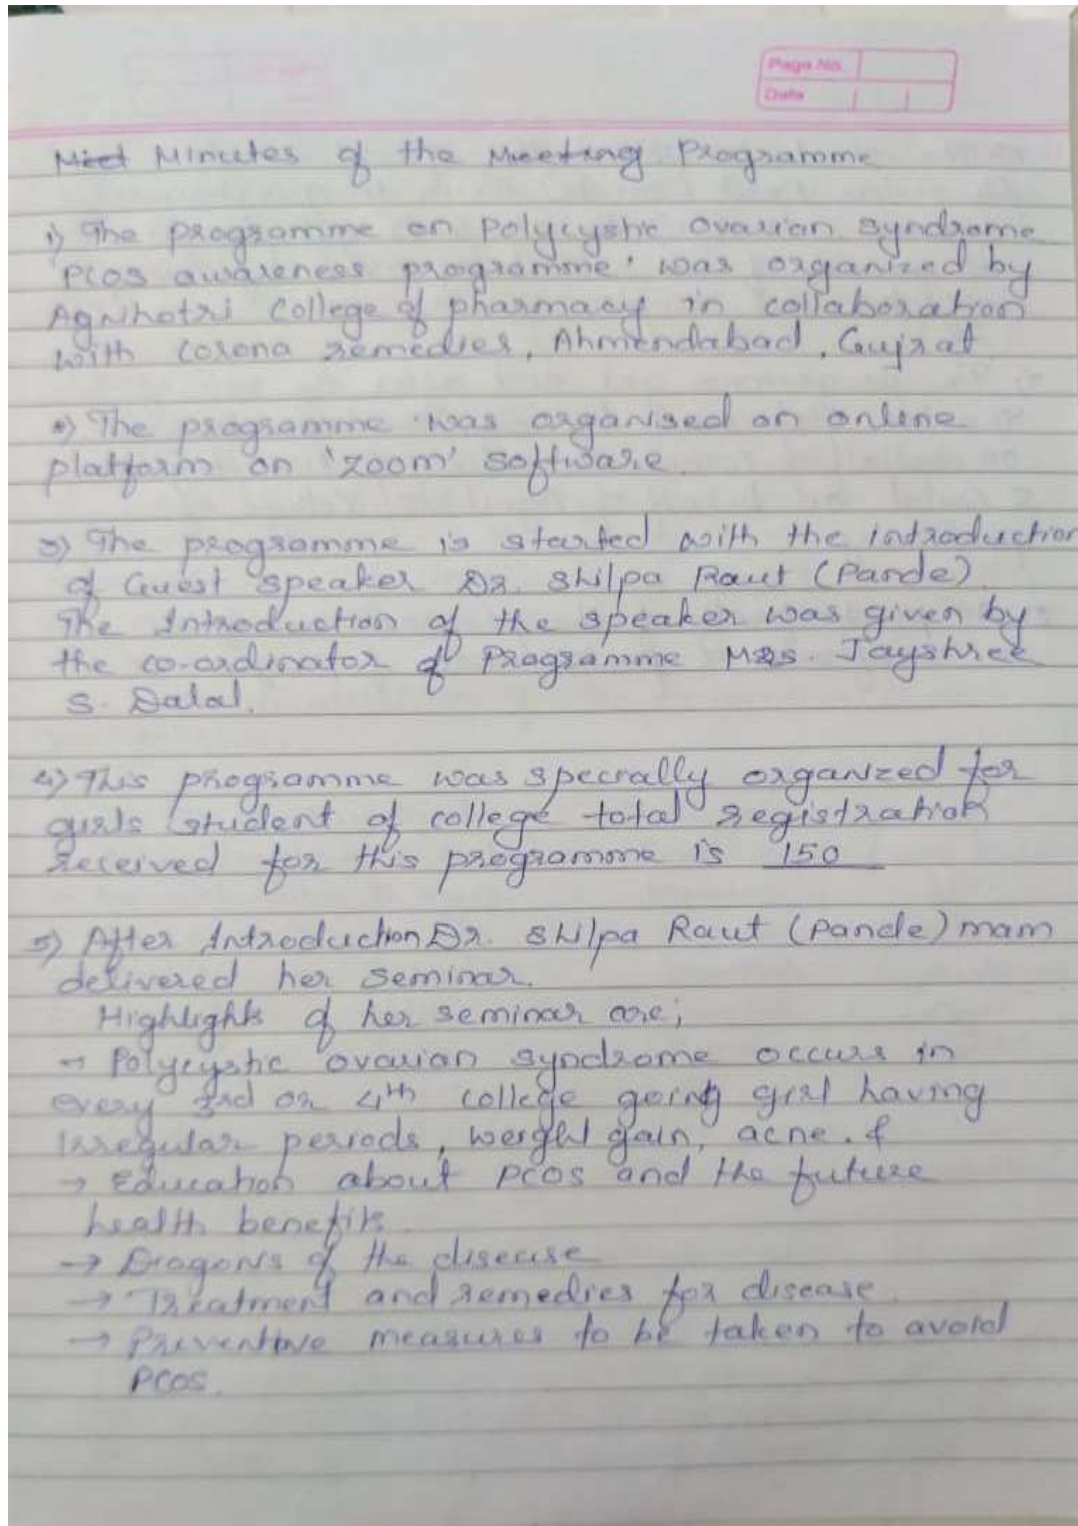 Page No.
Date
Meet Minutes of the Meeting Programme
1) The programme on Polycystic Ovarian Syndrome
'PCOS awareness programme' was organized by
Agnihotri College of pharmacy in collaboration
with corona remedies, Ahmendabad, Gujrat
2) The programme was organised on online
platform on 'zoom' software.
3) The programme is started with the introduction
of Guest speaker Dr. Shilpa Raut (Pande)
The Introduction of the speaker was given by
the co-ordinator of Programme Mrs. Jayshree
S. Dalal.
4) This programme was specially organized for
girls student of college total registration
received for this programme is 150
5) After Introduction Dr. Shilpa Raut (Pande) mam
delivered her seminar.
Highlights of her seminar are;
→ Polycystic ovarian syndrome occurs in
every 3rd or 4th college going girl having
Irregular periods, weight gain, acne. &
→ Education about PCOS and the future
health benefits.
→ Diagonis of the disease
→ Treatment and remedies for disease.
→ Preventive measures to be taken to avoid
PCOS.